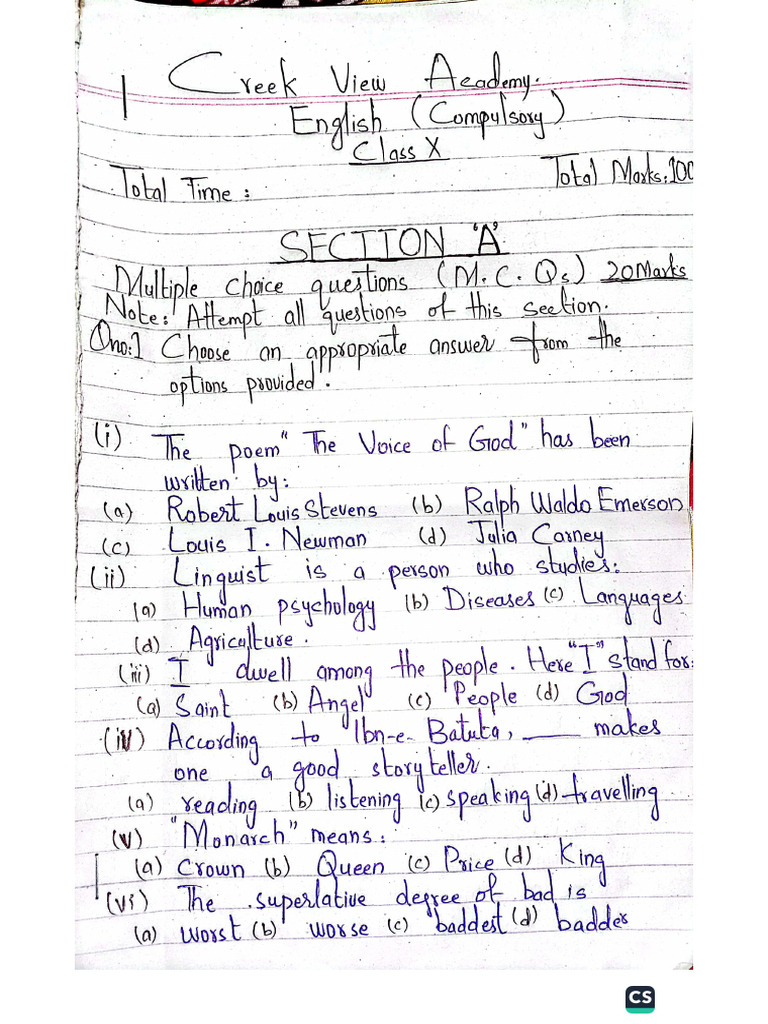 Creek View Academy.
English (Compulsory)
Class X
Total Time :
Total Marks:100
SECTION 'A'
Multiple choice questions (M.C.Qs) 20Marks
Note: Attempt all questions of this section.
Qno:1 Choose an appropriate answer from the
options provided.
(i) The poem "The Voice of God" has been
written by:
(a) Robert Louis Stevens (b) Ralph Waldo Emerson
(c) Louis I. Newman (d) Julia Carney
(ii) Linguist is a person who studies:
(a) Human psychology (b) Diseases (c) Languages
(d) Agriculture.
(iii) I dwell among the people. Here "I" stand for:
(a) Saint (b) Angel (c) People (d) God
(iv) According to Ibn-e-Batuta, ____ makes
one a good storyteller.
(a) reading (b) listening (c) speaking (d) travelling
(v) "Monarch" means:
(a) Crown (b) Queen (c) Price (d) King
(vi) The superlative degree of bad is
(a) worst (b) worse (c) baddest (d) badder
CS